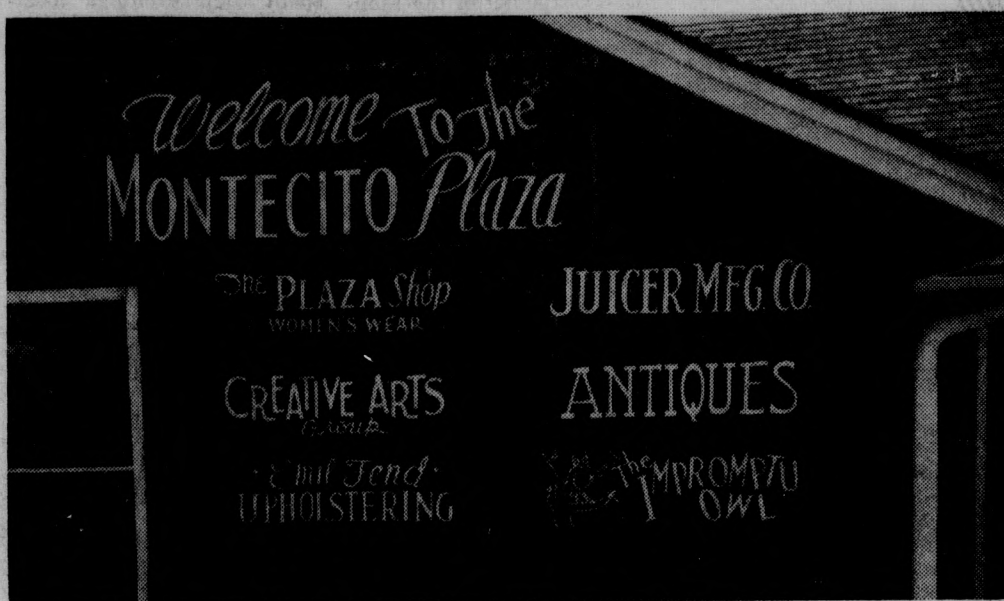 Welcome To The
MONTECITO Plaza
The PLAZA Shop
WOMEN'S WEAR
CREATIVE ARTS
Group
Emil Fend
UPHOLSTERING
JUICER MFG. CO.
ANTIQUES
The IMPROMPTU
OWL